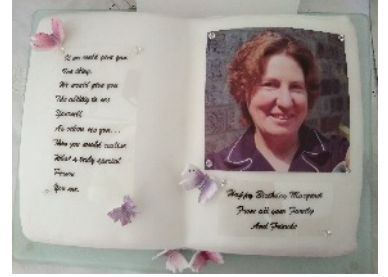 If we could give you
One thing,
We would give you
The ability to see
Yourself
As others see you...
Then you would realise
What a truly special
Person
You are.
Happy Birthday Margaret
From all your Family
And Friends